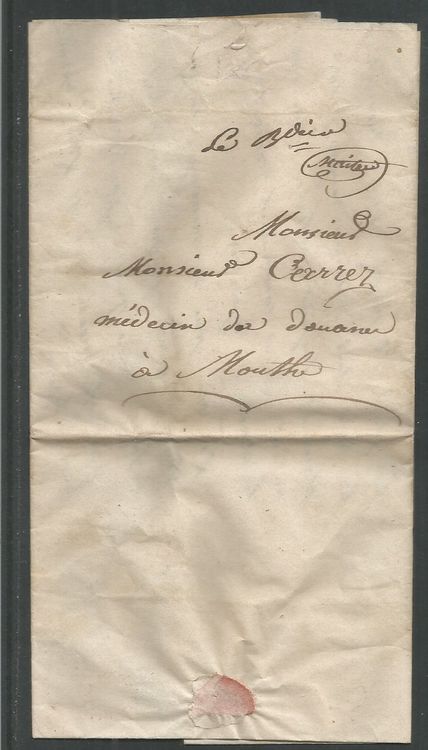 Le
Monsieur
Monsieur Cerrez
médecin des douanes
à Mouthe